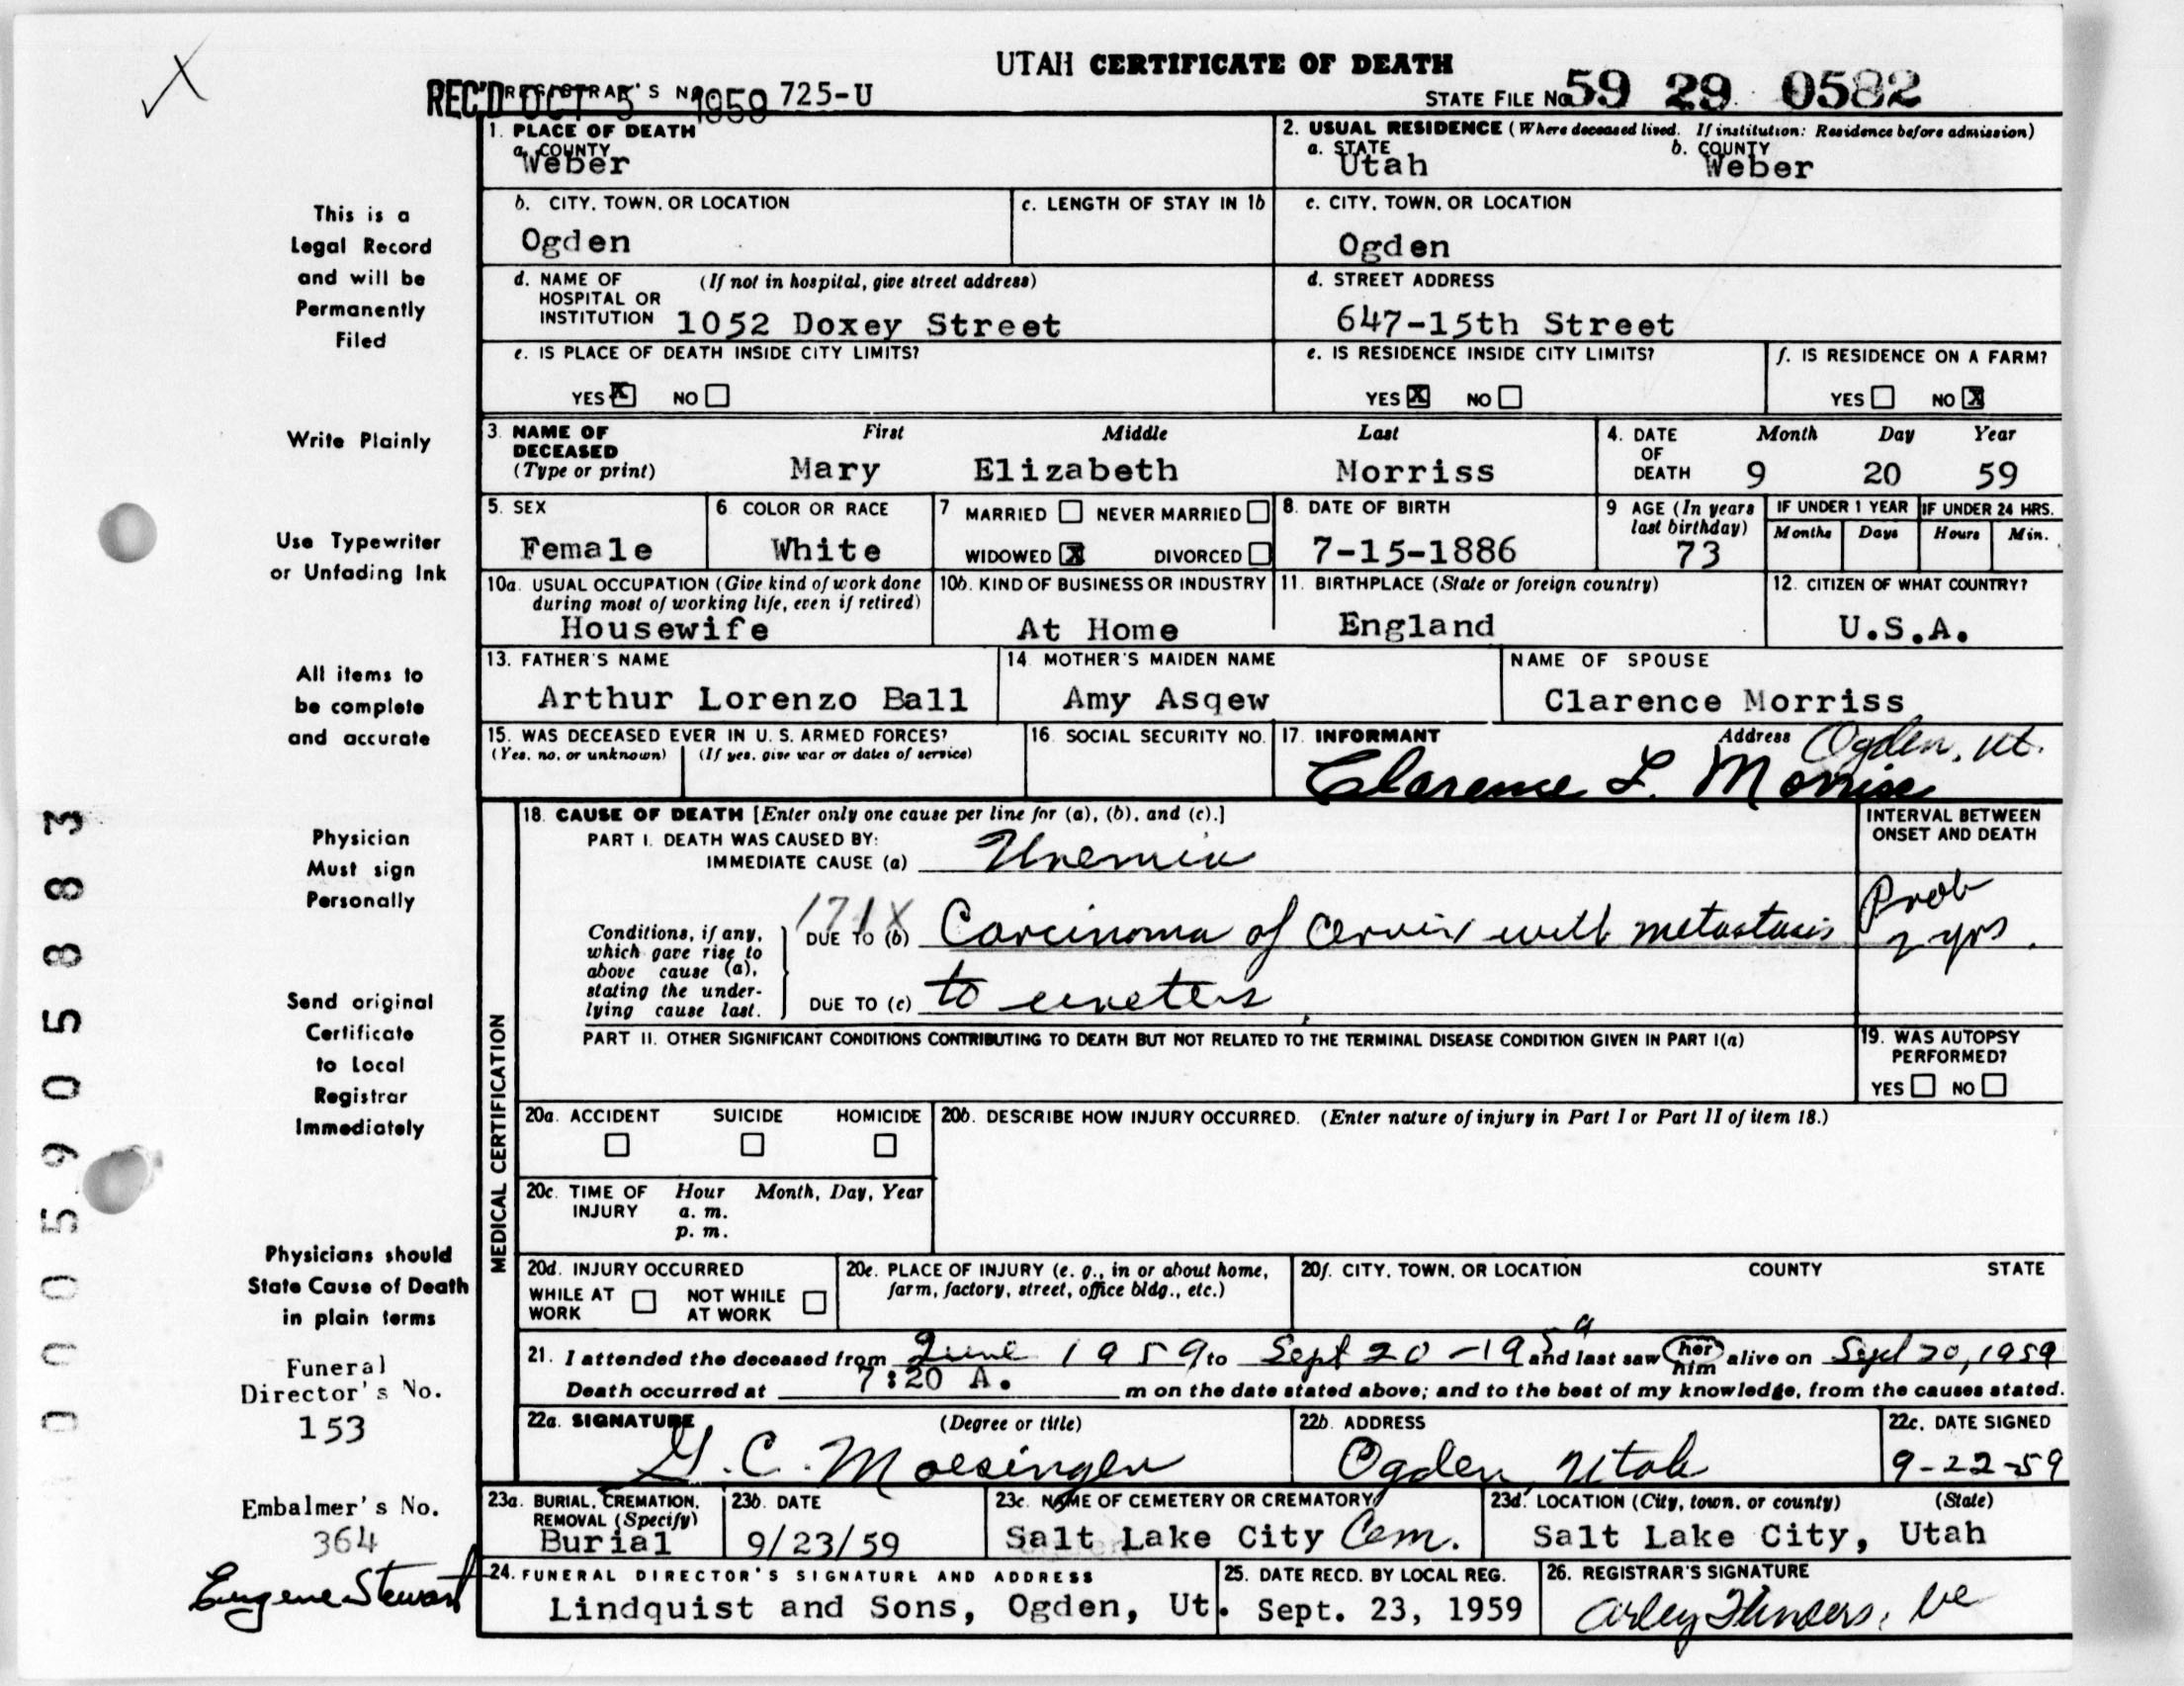 UTAH CERTIFICATE OF DEATH
REC'D OCT 5 1959 REGISTRAR'S NO. 725-U
STATE FILE No. 59 29 0582
1. PLACE OF DEATH
a. COUNTY
Weber
2. USUAL RESIDENCE (Where deceased lived. If institution: Residence before admission)
a. STATE b. COUNTY
Utah Weber
b. CITY, TOWN, OR LOCATION
Ogden
c. LENGTH OF STAY IN 1b
c. CITY, TOWN, OR LOCATION
Ogden
d. NAME OF HOSPITAL OR INSTITUTION (If not in hospital, give street address)
1052 Doxey Street
d. STREET ADDRESS
647-15th Street
e. IS PLACE OF DEATH INSIDE CITY LIMITS?
YES X NO
e. IS RESIDENCE INSIDE CITY LIMITS?
YES X NO
f. IS RESIDENCE ON A FARM?
YES NO X
3. NAME OF DECEASED (Type or print)
First Middle Last
Mary Elizabeth Morriss
4. DATE OF DEATH
Month Day Year
9 20 59
5. SEX
Female
6. COLOR OR RACE
White
7 MARRIED NEVER MARRIED
WIDOWED X DIVORCED
8. DATE OF BIRTH
7-15-1886
9 AGE (In years last birthday)
73
IF UNDER 1 YEAR
Months Days
IF UNDER 24 HRS.
Hours Min.
10a. USUAL OCCUPATION (Give kind of work done during most of working life, even if retired)
Housewife
10b. KIND OF BUSINESS OR INDUSTRY
At Home
11. BIRTHPLACE (State or foreign country)
England
12. CITIZEN OF WHAT COUNTRY?
U.S.A.
13. FATHER'S NAME
Arthur Lorenzo Ball
14. MOTHER'S MAIDEN NAME
Amy Asqew
NAME OF SPOUSE
Clarence Morriss
15. WAS DECEASED EVER IN U. S. ARMED FORCES?
(Yes, no, or unknown) (If yes, give war or dates of service)
16. SOCIAL SECURITY NO.
17. INFORMANT Address
Ogden, Ut.
Clarence L. Morriss
18. CAUSE OF DEATH [Enter only one cause per line for (a), (b), and (c).]
PART I. DEATH WAS CAUSED BY:
IMMEDIATE CAUSE (a) Uremia
INTERVAL BETWEEN ONSET AND DEATH
Conditions, if any, which gave rise to above cause (a), stating the underlying cause last.
171X
DUE TO (b) Carcinoma of Cervix with metastasis
Prob
2 yrs.
DUE TO (c) to ureters
PART II. OTHER SIGNIFICANT CONDITIONS CONTRIBUTING TO DEATH BUT NOT RELATED TO THE TERMINAL DISEASE CONDITION GIVEN IN PART I(a)
19. WAS AUTOPSY PERFORMED?
YES NO
MEDICAL CERTIFICATION
20a. ACCIDENT SUICIDE HOMICIDE
20b. DESCRIBE HOW INJURY OCCURRED. (Enter nature of injury in Part I or Part II of item 18.)
20c. TIME OF INJURY Hour Month, Day, Year
a. m.
p. m.
20d. INJURY OCCURRED
WHILE AT WORK NOT WHILE AT WORK
20e. PLACE OF INJURY (e. g., in or about home, farm, factory, street, office bldg., etc.)
20f. CITY, TOWN, OR LOCATION COUNTY STATE
21. I attended the deceased from June 1959 to Sept 20-1959 and last saw her him alive on Sept 20, 1959
Death occurred at 7:20 A. m on the date stated above; and to the best of my knowledge, from the causes stated.
22a. SIGNATURE (Degree or title)
G. C. Moesinger
22b. ADDRESS
Ogden Utah
22c. DATE SIGNED
9-22-59
23a. BURIAL, CREMATION, REMOVAL (Specify)
Burial
23b. DATE
9/23/59
23c. NAME OF CEMETERY OR CREMATORY
Salt Lake City Cem.
23d. LOCATION (City, town, or county) (State)
Salt Lake City, Utah
24. FUNERAL DIRECTOR'S SIGNATURE AND ADDRESS
Lindquist and Sons, Ogden, Ut.
25. DATE RECD. BY LOCAL REG.
Sept. 23, 1959
26. REGISTRAR'S SIGNATURE
This is a
Legal Record
and will be
Permanently
Filed
Write Plainly
Use Typewriter
or Unfading Ink
All items to
be complete
and accurate
Physician
Must sign
Personally
Send original
Certificate
to Local
Registrar
Immediately
Physicians should
State Cause of Death
in plain terms
Funeral
Director's No.
153
Embalmer's No.
364
Eugene Stewart
0005905883